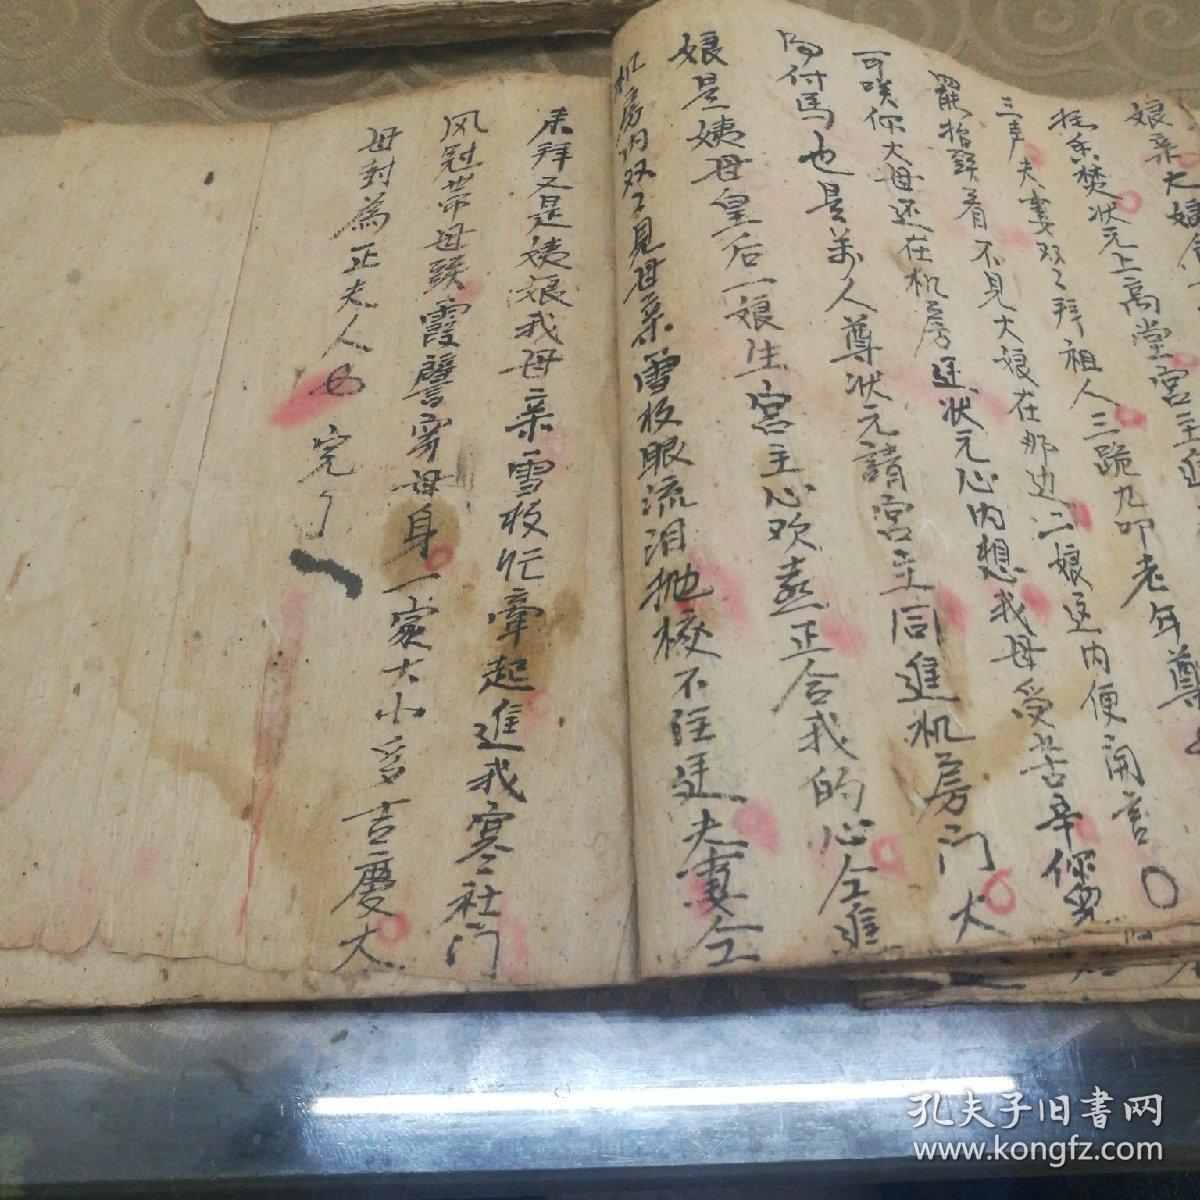 娘亲大娘
柱香焚状元上高堂宮主進
三声夫妻双々拜祖人三跪九叩老年尊
罷抬頭看不見大娘在那边二娘這内便開言
可咲你大母还在机房這状元心内想我母受苦辛你
为付馬也是万人尊状元請宮主同進机房门大
娘是姨母皇后一娘生宮主心欢喜正合我的心仝進
机房内双々見母亲雪枝眼流泪抛梭不住廷夫妻仝
来拜又是姨娘我母亲雪枝忙牽起進我寒社门
风冠带母頭霞譬穿母身一家大小多吉慶大
母封為正夫人也 完了
孔夫子旧书网
www.kongfz.com